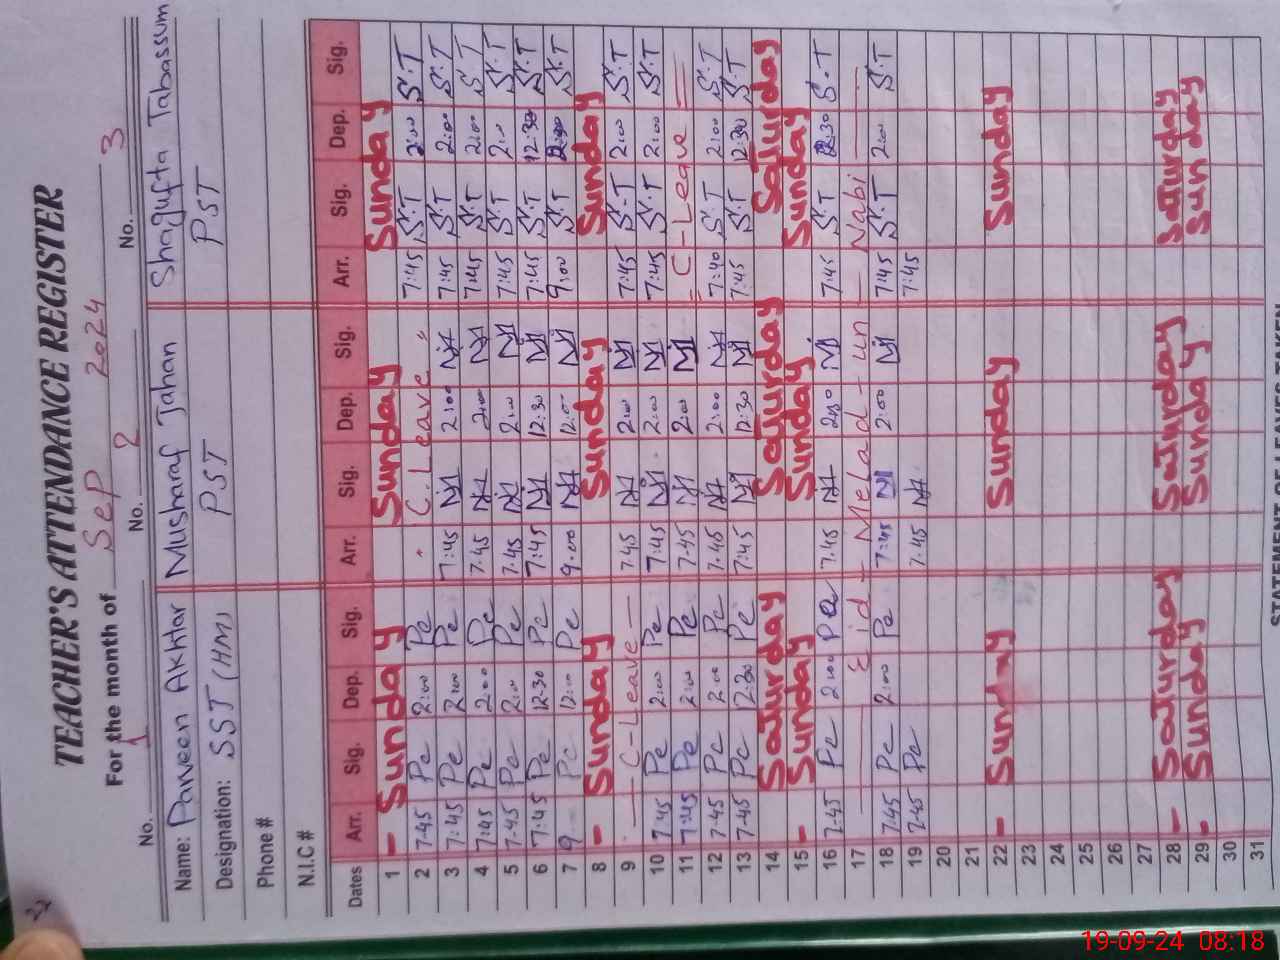 22
TEACHER'S ATTENDANCE REGISTER
For the month of Sep 2024
No. 1 No. 2 No. 3
Name: Parveen Akhtar Musharaf Jahan Shagufta Tabassum
Designation: SST (HM) PST PST
Phone #
N.I.C #
Dates Arr. Sig. Dep. Sig. Arr. Sig. Dep. Sig. Arr. Sig. Dep. Sig.
1 - Sunday Sunday Sunday
2 7.45 Pe 2:00 Pe C. Leave 7:45 S.T 2:00 S.T
3 7:45 Pe 2:00 Pe 7:45 2:00 7:45 S.T 2:00 S.T
4 7:45 Pe 2:00 Pe 7.45 2:00 7:45 S.T 2:00 S.T
5 7.45 Pe 2:00 Pe 7.45 2:00 7:45 S.T 2:00 S.T
6 7:45 Pe 12:30 Pe 7:45 12:30 7:45 S.T 12:30 S.T
7 9 Pe 12:00 Pe 9:00 12:00 9:00 S.T S.T
8 - Sunday Sunday Sunday
9 C-Leave 7.45 2:00 7:45 S.T 2:00 S.T
10 7:45 Pe 2:00 Pe 7:45 2:00 7:45 S.T 2:00 S.T
11 7:45 Pe 2:00 Pe 7.45 2:00 = C-Leave =
12 7.45 Pe 2:00 Pe 7.45 2:00 7:40 S.T 2:00 S.T
13 7.45 Pe 12.30 Pe 7:45 12:30 7:45 S.T 12:30 S.T
14 Saturday Saturday Saturday
15 - Sunday Sunday Sunday
16 7.45 Pe 2:00 Pe 7.45 7:45 S.T S.T
17 Eid - Melad - un - Nabi
18 7.45 Pe 2:00 Pe 7:45 2:00 7:45 S.T 2:00 S.T
19 7.45 Pe 7.45 7:45
20
21
22 - Sunday Sunday Sunday
23
24
25
26
27
28 - Saturday Saturday Saturday
29 - Sunday Sunday Sunday
30
31
19-09-24 08:18